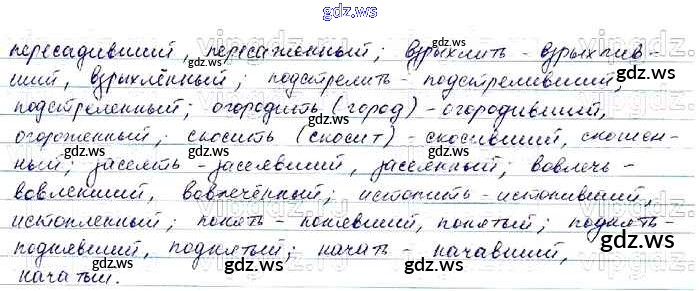 gdz.ws
пересадивший, пересаженный; взрыхлить - взрыхлив-
ший, взрыхлённый; подстрелить - подстреливший,
подстреленный; огородить (город) - огородивший,
огороженный; скосить (скосит) - скосивший, скошен-
ный; засеять - засеявший, засеянный; вовлечь -
вовлекший, вовлечённый; истопить - истопивший,
истопленный; понять - понявший, понятый; поднять -
поднявший, поднятый; начать - начавший,
начатый.